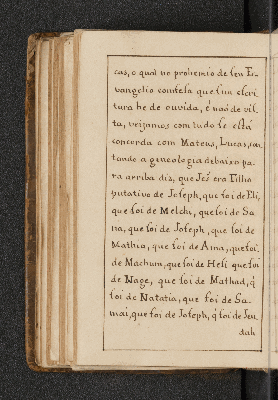 cas, o qual no prohemio de seu E-
vangelho confesa que sua escri
tura he de ouvida, e naõ de vis-
ta, vejamos com tudo se està
concorda com Mateus, Lucas, con
tando a gineologia debaixo pa
ra arriba diz, que Jeś era Filho
putativo de Joseph, que foi de Eli,
que foi de Melchi, que foi de Sa
na, que foi de Joseph, que foi de
Mathia, que foi de Ama, que foi
de Machum, que foi de Heli que foi
de Nage, que foi de Mathad, q̃
foi de Natatia, que foi de Sa-
mai, que foi de Joseph, q̃ foi de Jeu
dah